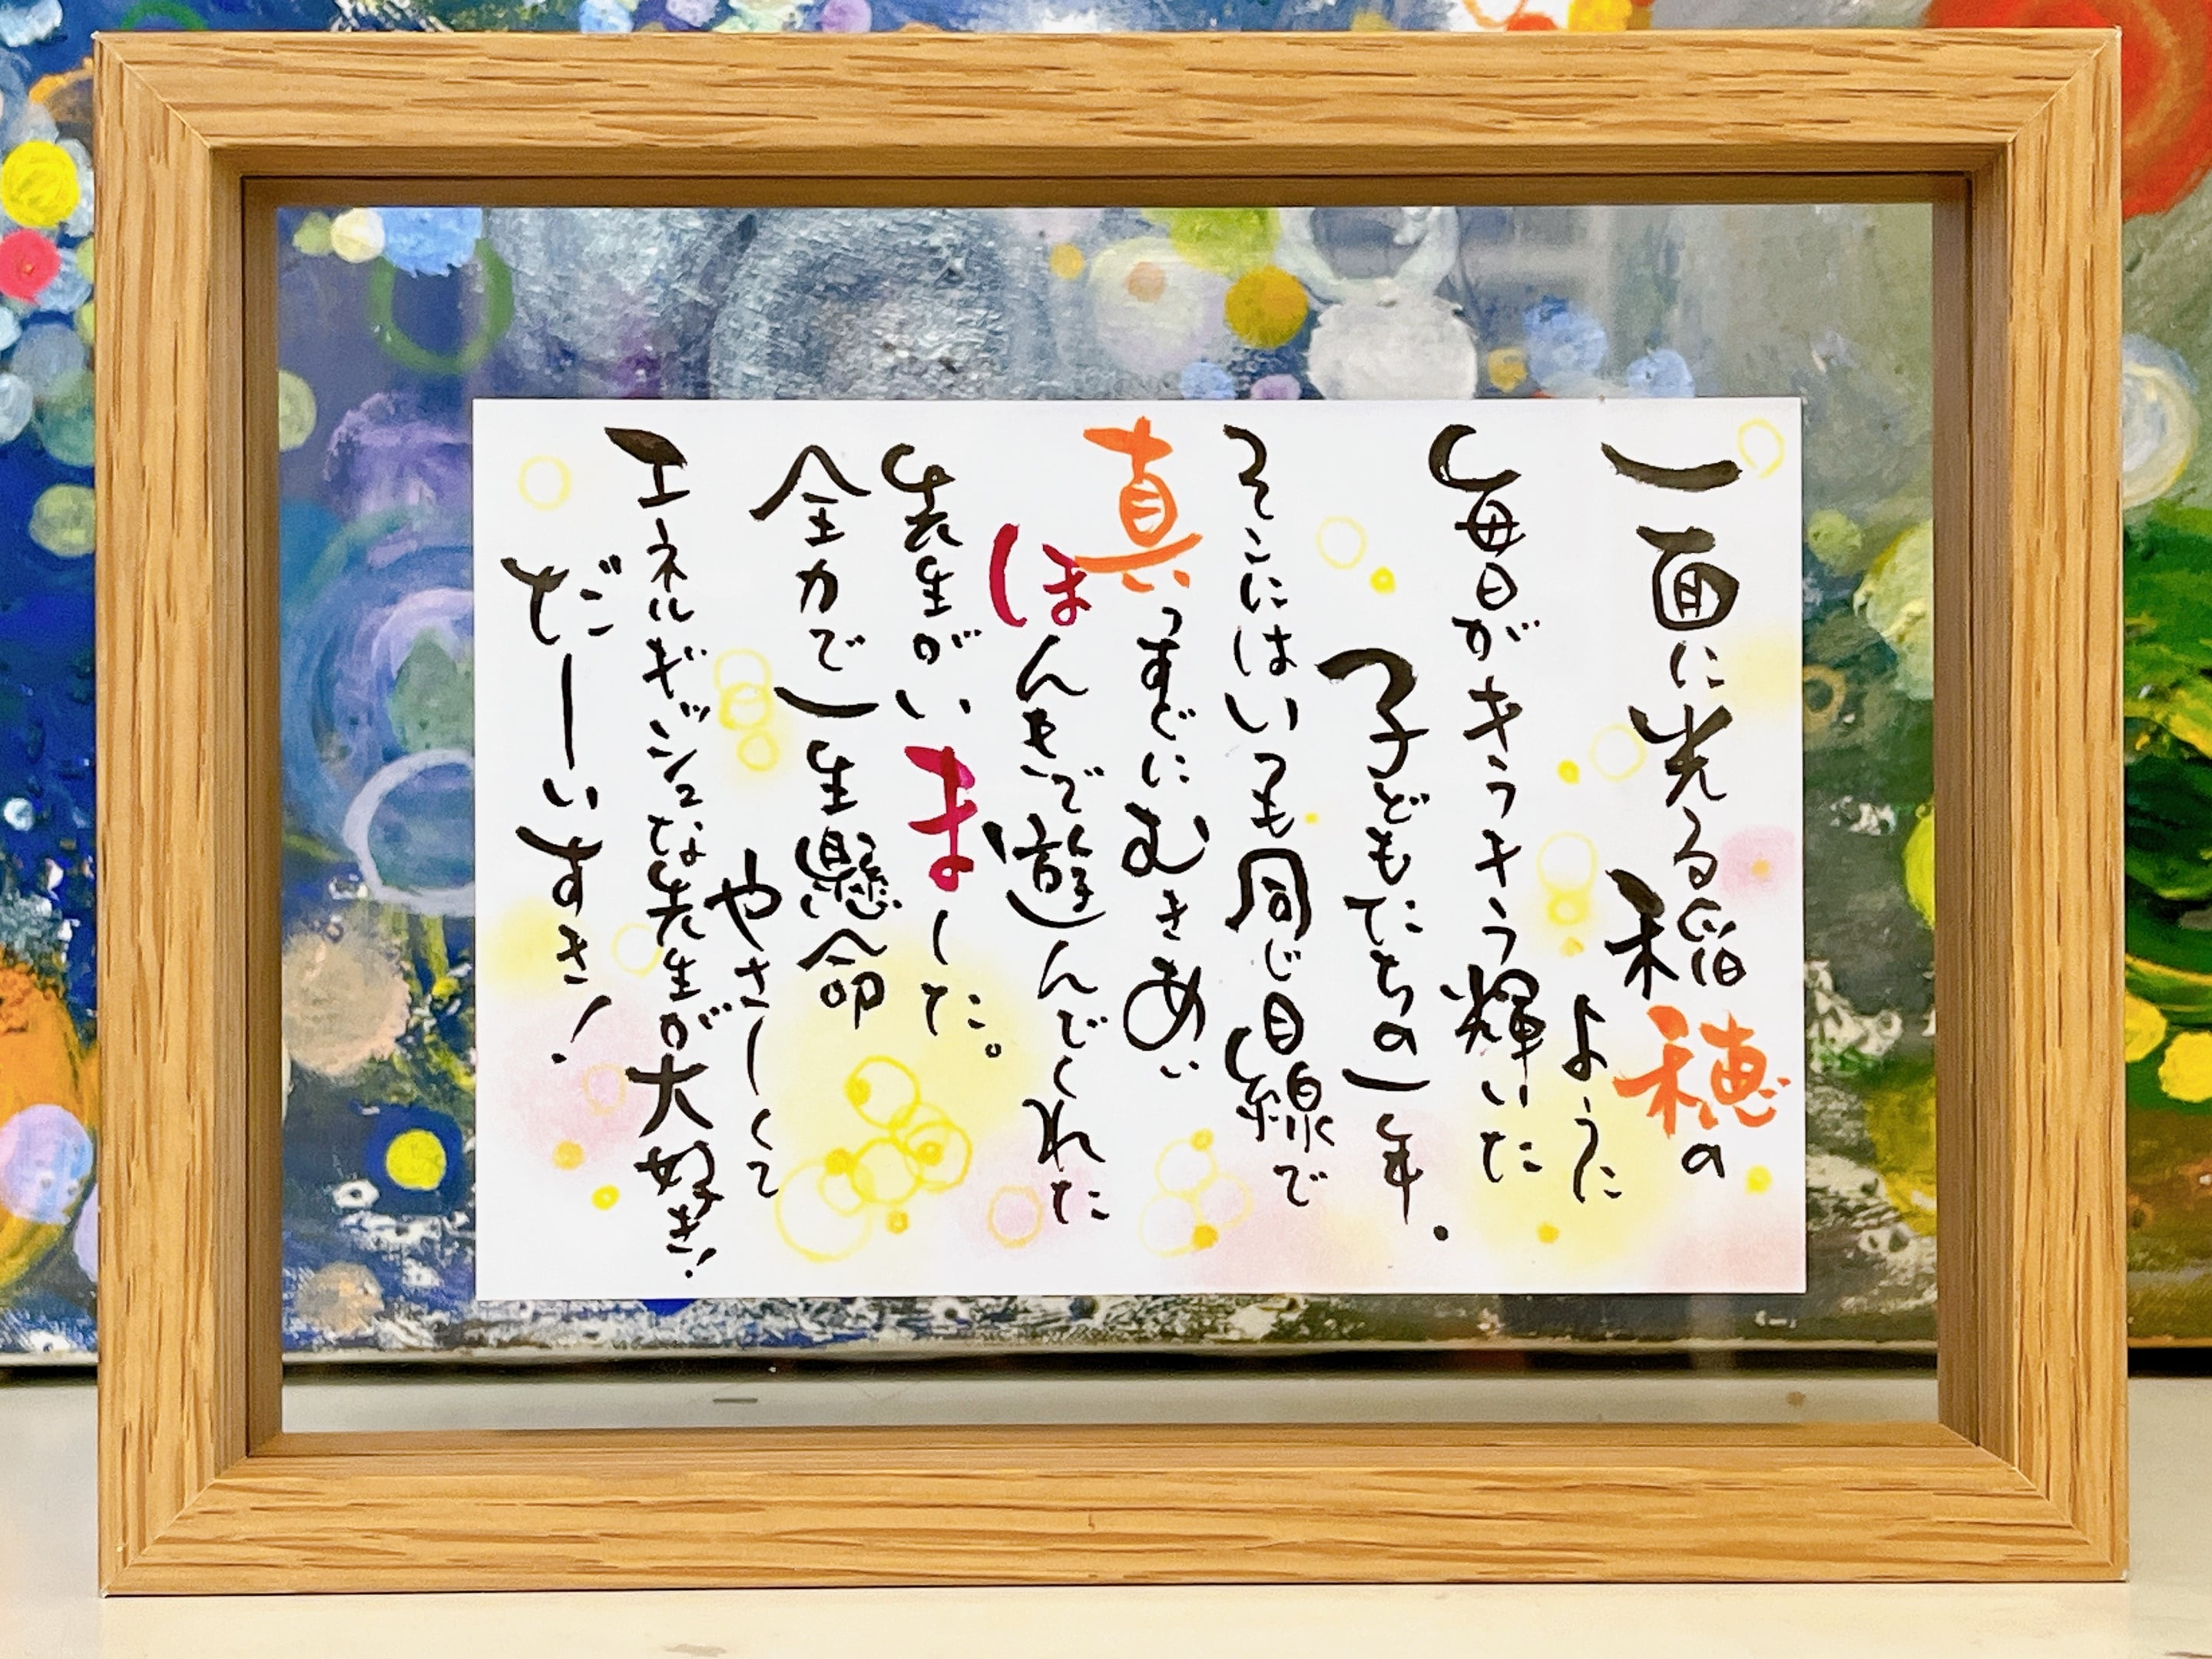 一面に光る稲穂の
ように
毎日がキラキラ輝いた
子どもたちの一年.
そこにはいつも同じ目線で
真っすぐにむきあい
ほんきで遊んでくれた
先生がいました。
全力で一生懸命
やさしくて
エネルギッシュな先生が大好き!
だーいすき!